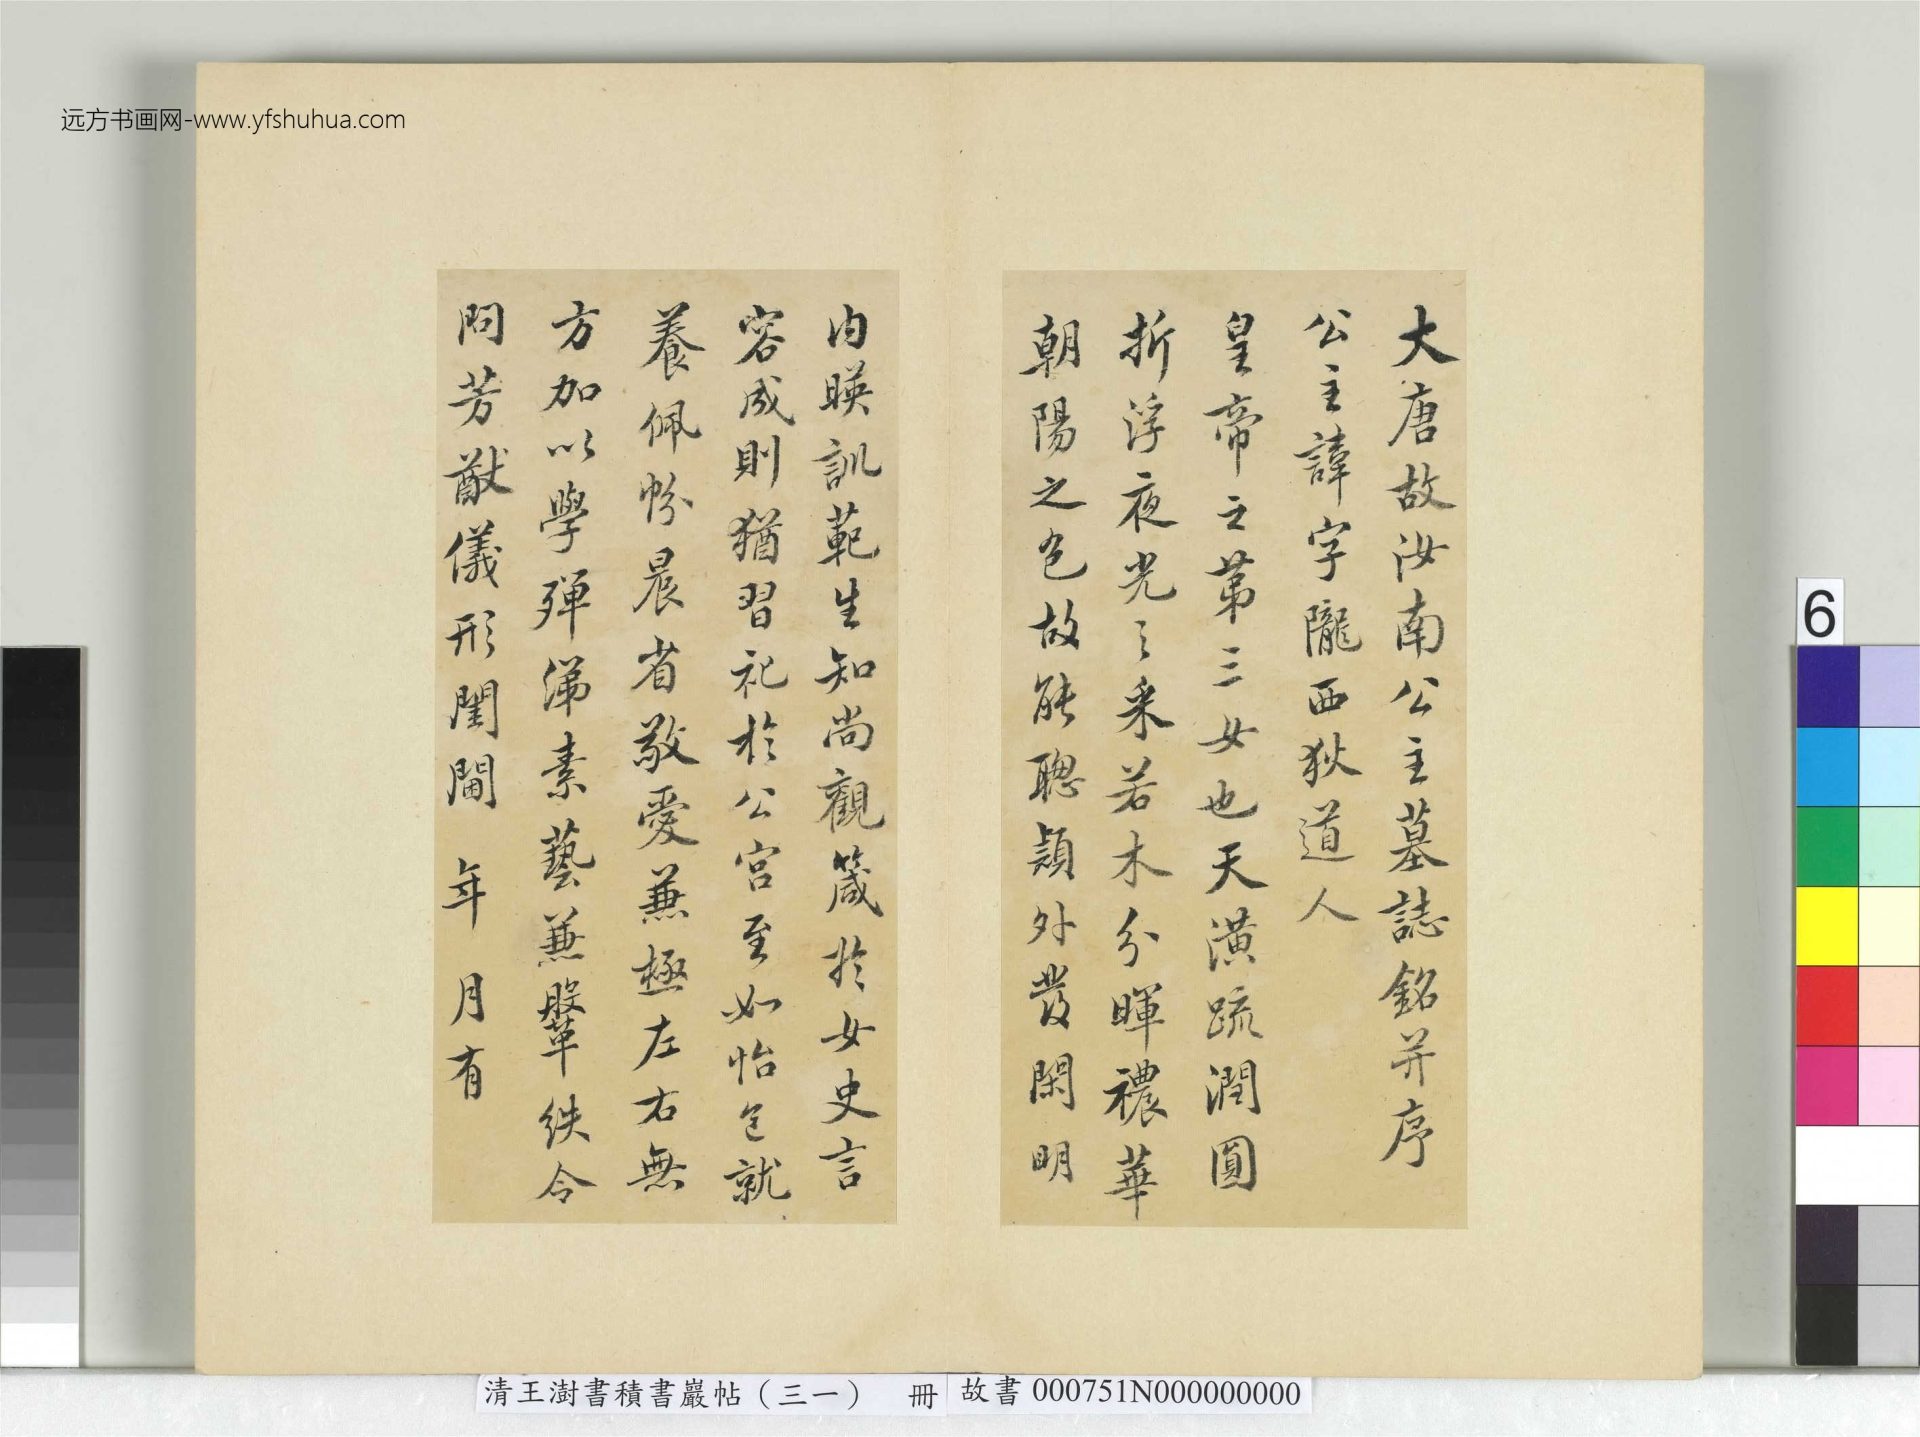 远方书画网-www.yfshuhua.com
大唐故汝南公主墓誌銘并序
公主諱字隴西狄道人
皇帝之第三女也天潢疏潤圓
折浮夜光之采若木分暉禯華
朝陽之色故能聰穎外發閑明
内暎訓範生知尚觀箴於女史言
容成則猶習祀於公宮至如怡色就
養佩帉晨省敬愛兼極左右無
方加以學殫綈素藝兼鞶紩令
問芳猷儀形閨閫 年 月有
6
清王澍書積書巖帖（三一） 冊
故書 000751N000000000